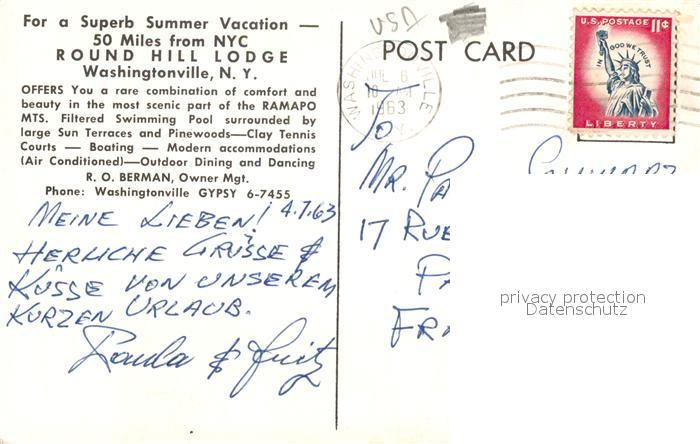 For a Superb Summer Vacation —
50 Miles from NYC
ROUND HILL LODGE
Washingtonville, N. Y.
OFFERS You a rare combination of comfort and
beauty in the most scenic part of the RAMAPO
MTS. Filtered Swimming Pool surrounded by
large Sun Terraces and Pinewoods—Clay Tennis
Courts — Boating — Modern accommodations
(Air Conditioned)—Outdoor Dining and Dancing
R. O. BERMAN, Owner Mgt.
Phone: Washingtonville GYPSY 6-7455
MEINE LIEBEN! 4.7.63
HERLICHE GRÜSSE &
KÜSSE VON UNSEREM
KURZEN URLAUB.
& Fritz
USA
POST CARD
WASHINGTONVILLE
JUL 6
1963
N.Y.
U.S. POSTAGE 11¢
IN GOD WE TRUST
LIBERTY
To
MR. PA
17 RUE
PA
FRA
privacy protection
Datenschutz